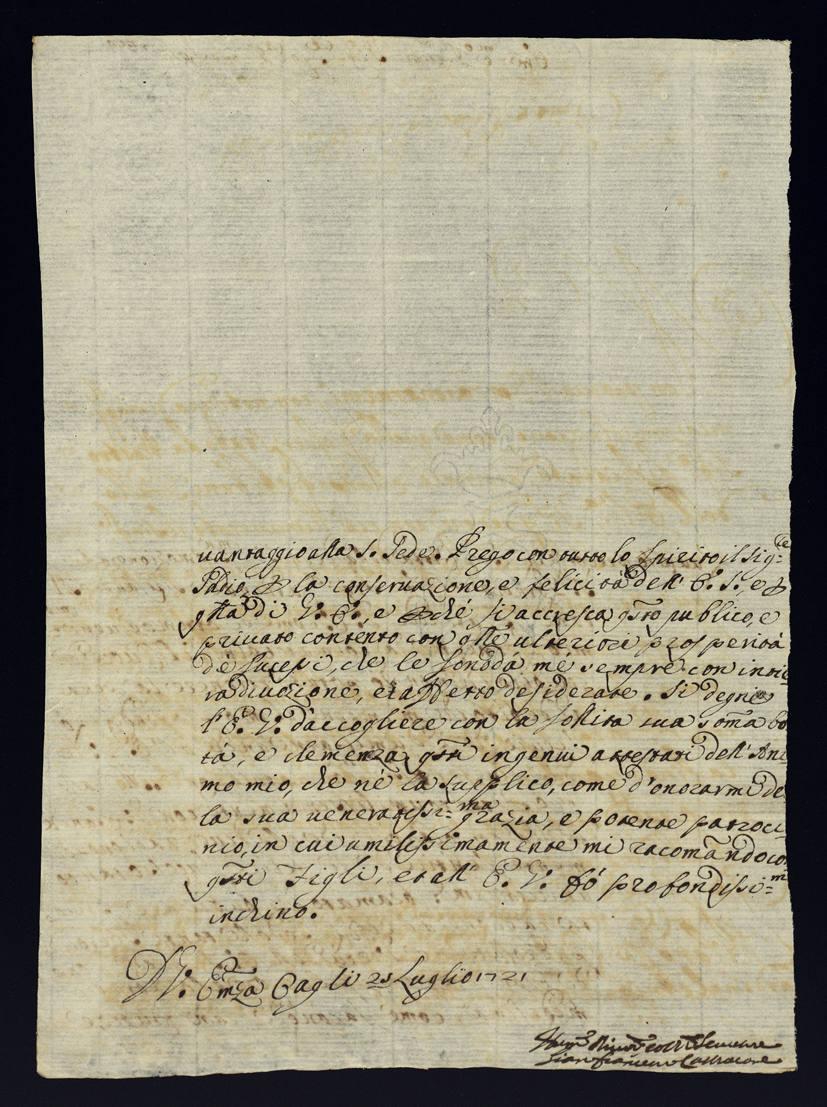 uantaggio alla S. Sede. Prego con tutto lo Spirito il Sig.re
Iddio, p la conseruazione, e felicità dell' E. S. e p
qlla di V. E., e pchè si accresca qsto publico, e
priuato contento con altre ulteriori prosperità
de sucessi, che le sono da me sempre con intie
ra diuozione, et affetto desiderate. Si degni
l' E. V. d'accogliere con la solita sua soma bo
tà, e clemenza qsti ingenui attestati dell' Ani
mo mio, che nè la supplico, come d'onorarmi de
la sua ueneratissi=ma grazia, e potente patroci
nio, in cui umilissimamente mi racomando co
qsti Figli, et all' E. V. fò profondissi=mo
inchino.
D. V. Emza Cagli 25 Luglio 1721
Gian Francesco